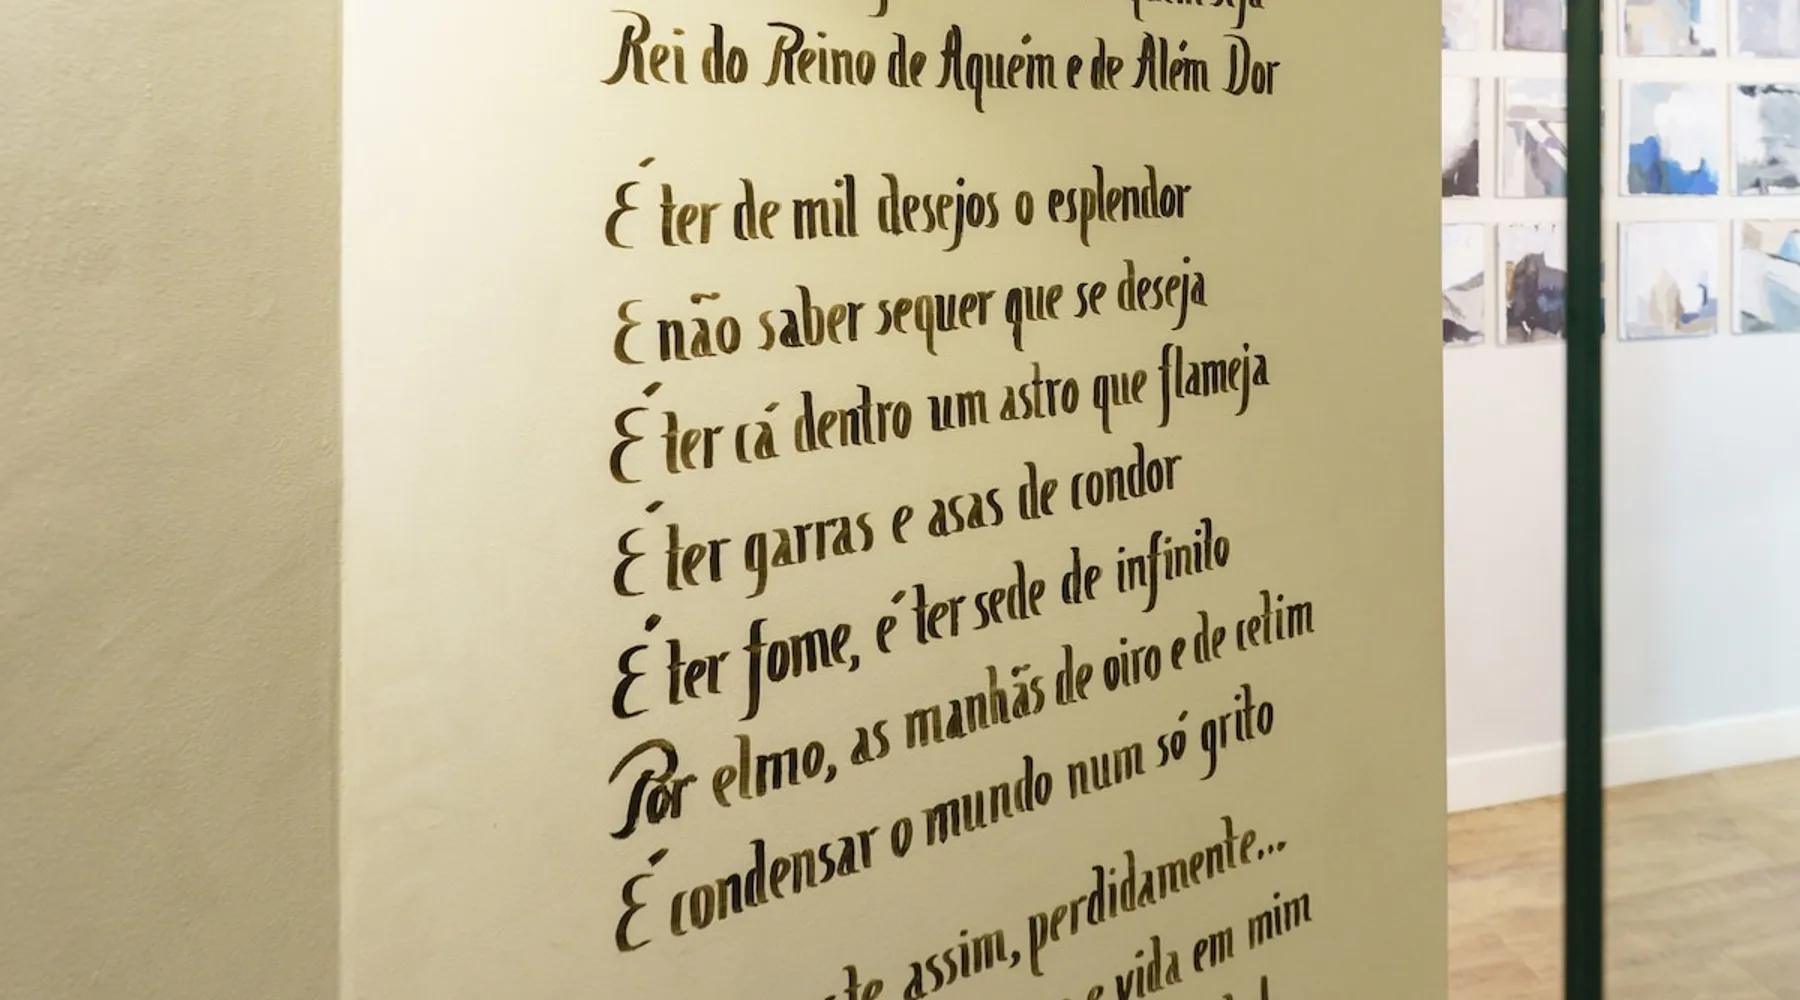 Rei do Reino de Aquém e de Além Dor
É ter de mil desejos o esplendor
E não saber sequer que se deseja
É ter cá dentro um astro que flameja
É ter garras e asas de condor
É ter fome, é ter sede de infinito
Por elmo, as manhãs de oiro e de cetim
É condensar o mundo num só grito
assim, perdidamente...
e vida em mim